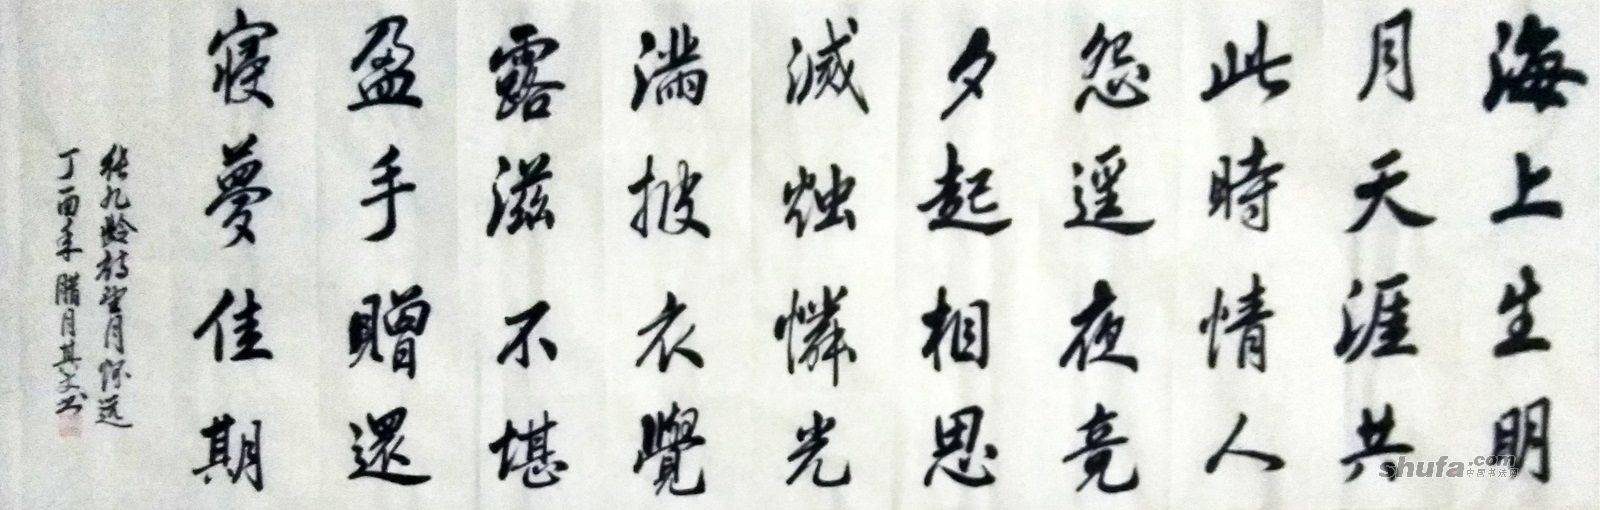 海上生明
月天涯共
此時情人
怨遥夜竟
夕起相思
滅烛憐光
满披衣覺
露滋不堪
盈手贈還
寝夢佳期
張九龄诗望月怀远
丁酉年腊月其文书
shufa.com
中国书法网